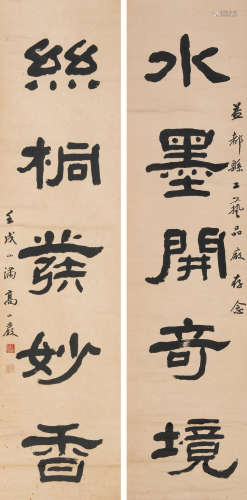 益都縣工藝品廠存念
水墨開奇境
絲桐發妙香
壬戌小滿高小巖